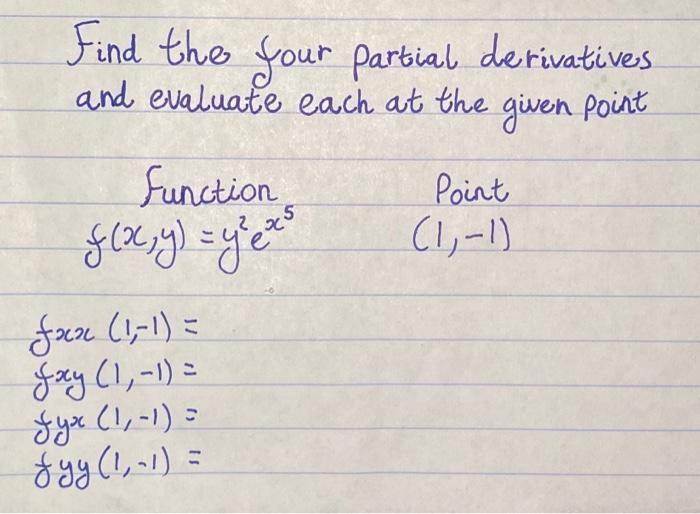 Find the four partial derivatives
and evaluate each at the given point
Function Point
f(x,y) = y²eˣ⁵ (1,-1)
fxx (1,-1) =
fxy (1,-1) =
fyx (1,-1) =
fyy (1,-1) =